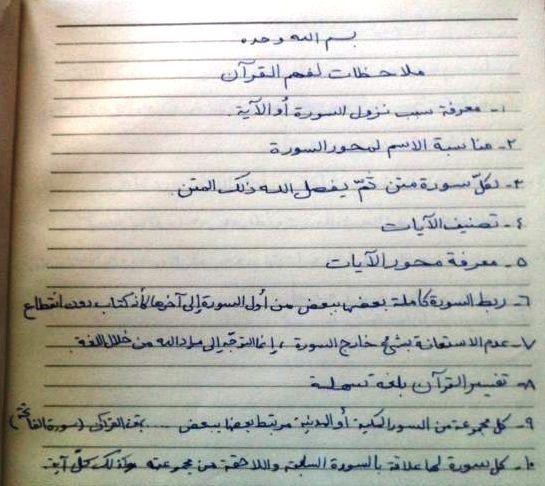 بسم الله وحده
ملاحظات لفهم القرآن
١- معرفة سبب نزول السورة أو الآية.
٢- مناسبة الاسم لمحور السورة
٣- لكلّ سورة متن ثمّ يفصل الله ذلك المتن.
٤- تصنيف الآيات
٥- معرفة محور الآيات
٦- ربط السورة كاملة بعضها ببعض من أول السورة إلى آخرها كأنه كتاب دون انقطاع
٧- عدم الاستعانة بشيء خارج السورة، إنما التوجّه إلى مراد الله من خلال اللغة.
٨- تفسير القرآن بلغة سهلة
٩- كل مجموعة من السور المكية أو المدنية مرتبط بعضها ببعض ..... القرآن (سورة الفاتحة)
١٠- كل سورة لها علاقة بالسورة السابقة واللاحقة من مجموعته وكذلك كلّ آية.